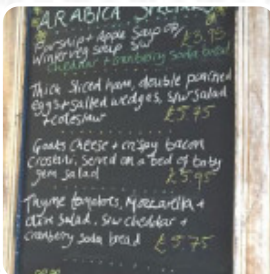 ARABICA Specials
Parsnip + Apple Soup or £3.95
Winter veg soup s/w
cheddar + cranberry soda bread
Thick Sliced ham, double poached
eggs + salted wedges, s/w salad
+ coleslaw £5.75
Goats Cheese + crispy bacon
Crostini, served on a bed of baby
gem salad £5.95
Thyme tomatoes, Mozzarella +
olive Salad, s/w cheddar +
cranberry soda bread £5.75